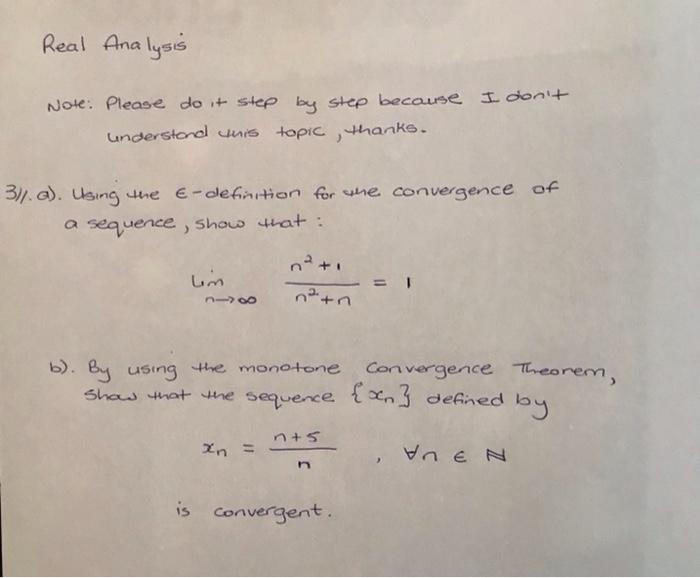 Real Analysis
Note: Please do it step by step because I don't
understand this topic, thanks.
3//. a). Using the ε-definition for the convergence of
a sequence, show that :
lim n→∞ (n² + 1)/(n² + n) = 1
b). By using the monotone Convergence Theorem,
Show that the sequence {xₙ} defined by
xₙ = (n + 5)/n , ∀n ∈ ℕ
is convergent.